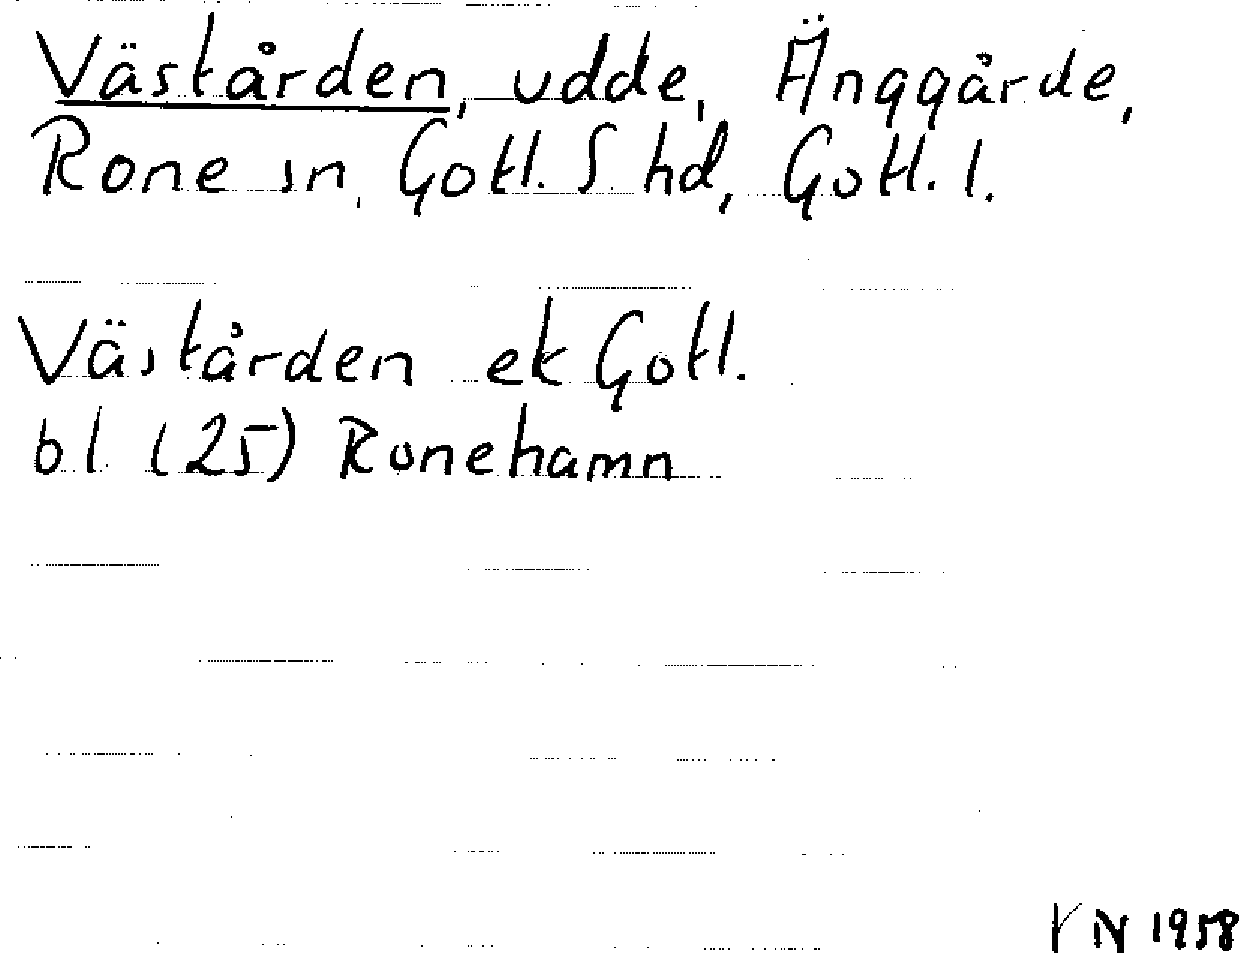 Västården, udde, Änggårde,
Rone sn, Gotl. S. hd, Gotl. l.
Västården ek Gotl.
bl (25) Ronehamn
N 1958